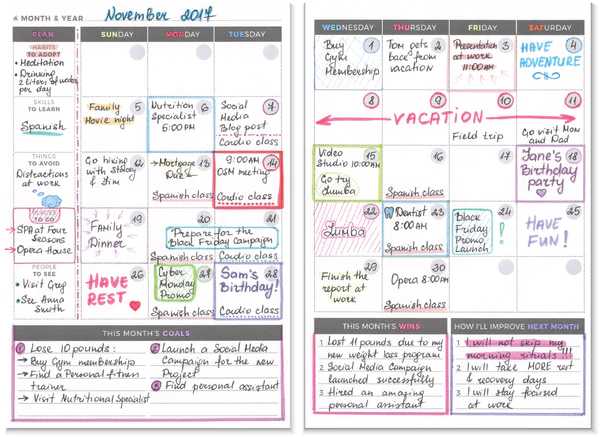 MONTH & YEAR November 2017
PLAN SUNDAY MONDAY TUESDAY
HABITS
TO ADOPT
• Meditation
• Drinking
2 liters of water
per day
SKILLS
TO LEARN
Spanish
THINGS
TO AVOID
Distractions
at work
TO GO
→ SPA at Four
Seasons
→ Opera House
PEOPLE
TO SEE
• Visit Greg
• See Anna
Smith
5
Family
Movie night
6
Nutrition
Specialist
5:00PM
7
Social
Media
Blog post
Cardio class
12
Go hiking
with Stacey
& Jim
13
→ Mortgage
Due
Spanish class
14
9:00AM
OSM meeting
Cardio class
19
Family
Dinner
20 21
Prepare for the
Black Friday Campaign
Spanish class
Cardio class
26
HAVE
REST
27
Cyber
Monday
Promo
Spanish class
28
Sam's
Birthday!
Cardio class
THIS MONTH'S GOALS
1 Lose 10 pounds:
→ Buy Gym membership
→ Find a Personal fitness
trainer
→ Visit Nutritional Specialist
2 Launch a Social Media
Campaign for the new
Project
3 Find personal assistant
WEDNESDAY THURSDAY FRIDAY SATURDAY
1
Buy
Gym
Membership
2
Tom gets
back from
vacation
3
Presentation
at work
11:00AM
4
HAVE
ADVENTURE
8 9 10 11
VACATION
Field trip
Go visit Mom
and Dad
15
Video
Studio 10:00AM
Go try
Zumba
16
Spanish class
17
18
Jane's
Birthday
party
22
Zumba
23
Dentist
8:00AM
Spanish class
24
Black
Friday
Promo
Launch !
25
HAVE
FUN!
29
Finish the
report at
work
30
Opera 8:00PM
Spanish class
THIS MONTH'S WINS
1 Lost 11 pounds due to my
new weight loss program
2 Social Media Campaign
launched successfully
3 Hired an amazing
personal assistant
HOW I'LL IMPROVE NEXT MONTH
1 I will not skip my
morning rituals!!!
2 I will take MORE rest
& recovery days
3 I will stay focused
at work